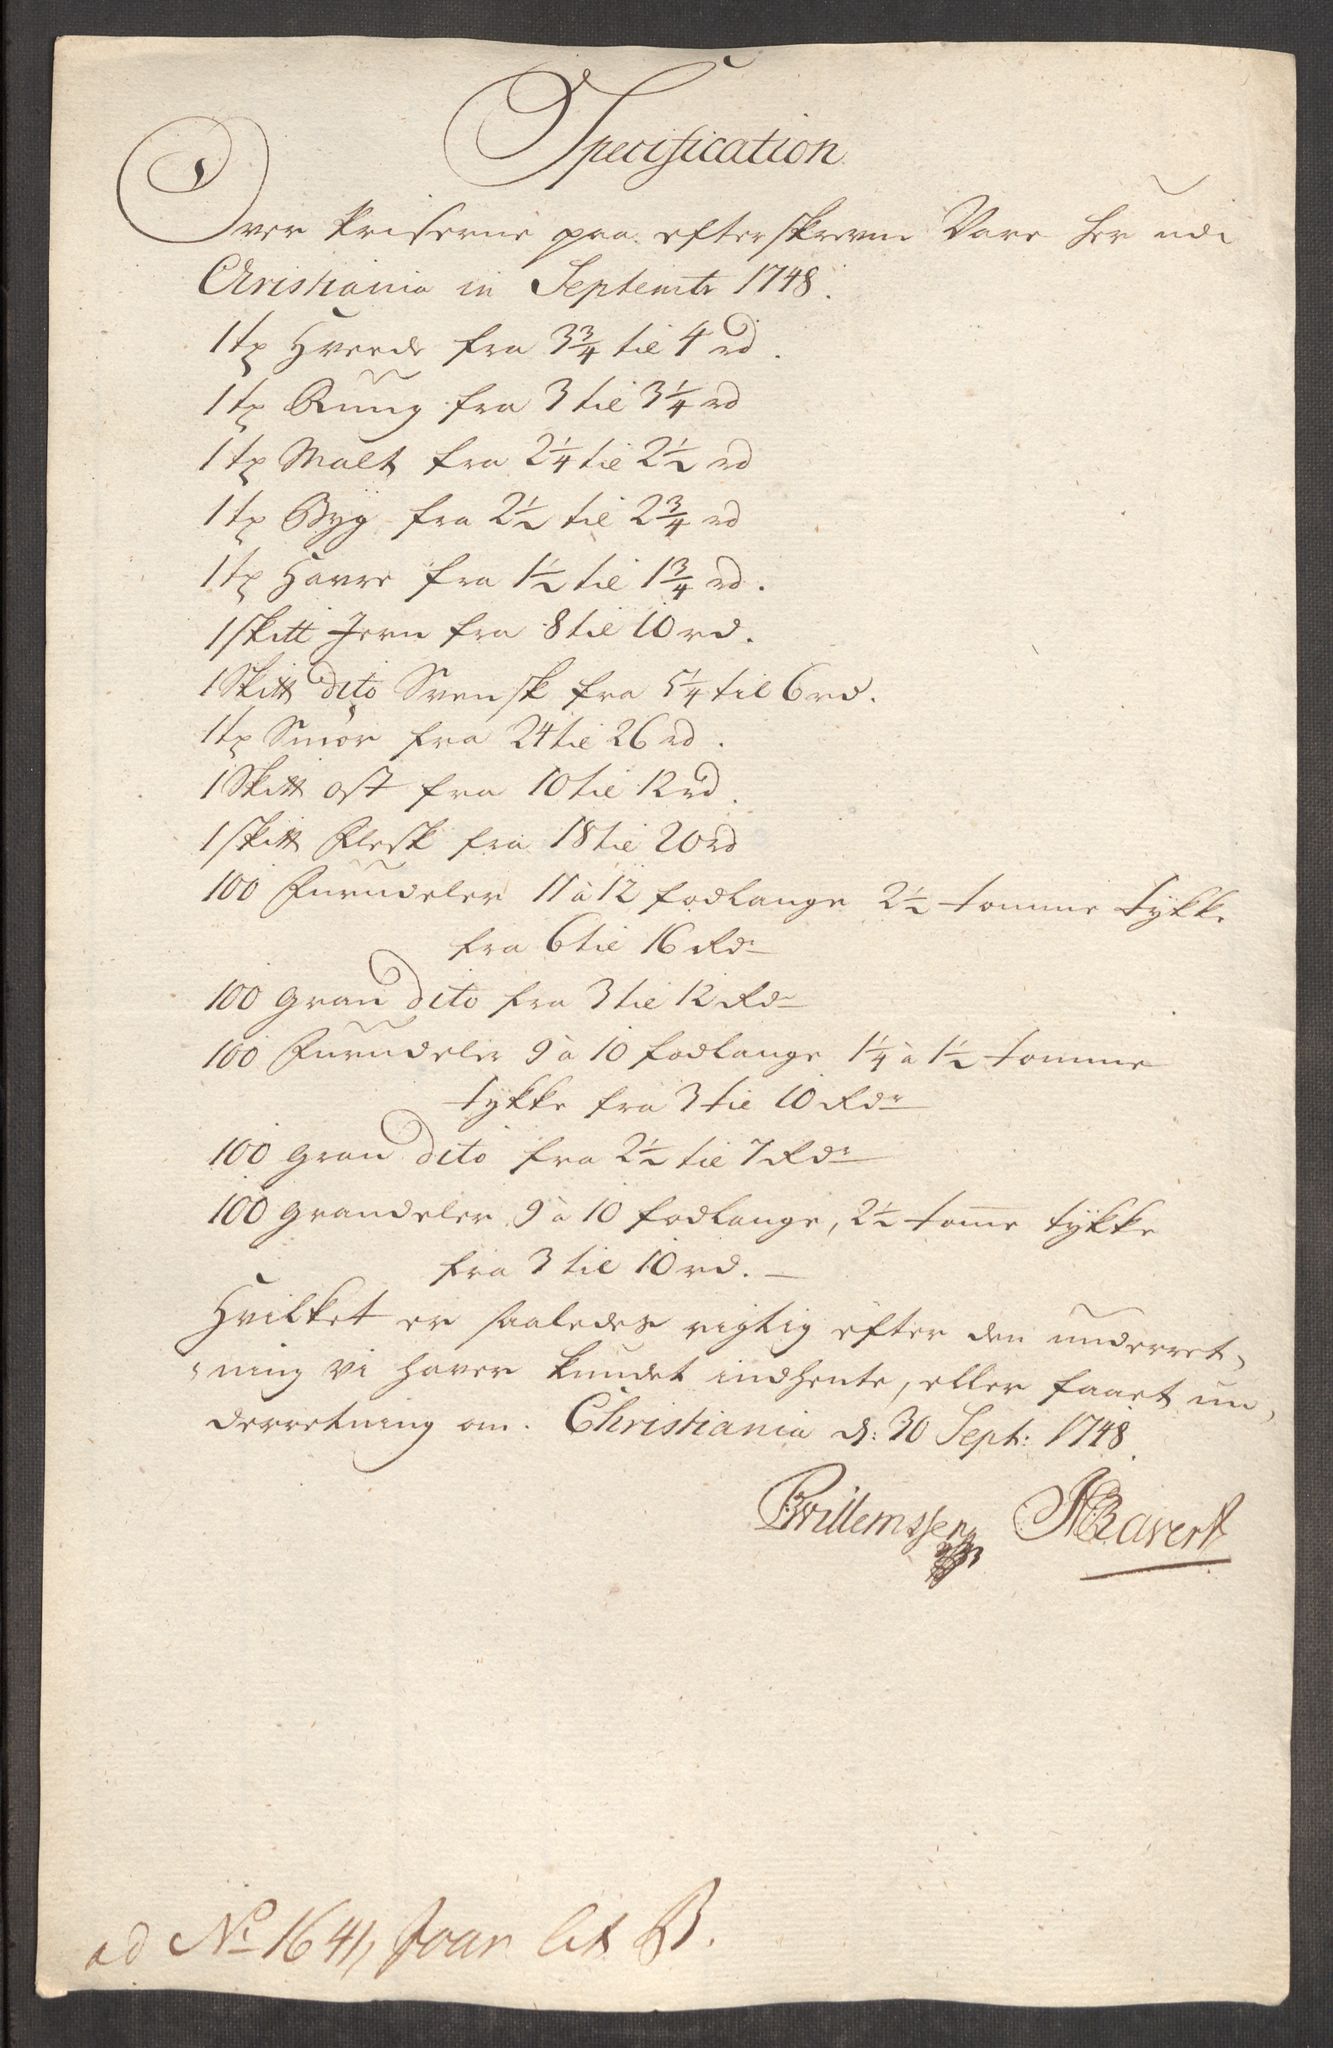 Specification
Over Priserne paa efterskrevne Vare her udi
Christiania in Septembr 1748.
1 tø Hvede fra 3 3/4 til 4 rd.
1 tø Rüug fra 3 til 3 1/4 rd
1 tø Malt fra 2 1/4 til 2 1/2 rd
1 tø Byg fra 2 1/2 til 2 3/4 rd
1 tø Havre fra 1 1/2 til 1 3/4 rd.
1 skitt Jern fra 8 til 10 rd.
1 Skitt dito Svensk fra 5 1/4 til 6 rd.
1 tø Smør fra 24 til 26 rd.
1 Skitt ost fra 10 til 12 rd.
1 skitt Flesk fra 18 til 20 rd
100 Furudeler 11 à 12 fodlange 2 1/2 tomme tykke
fra 6 til 16 Rdr
100 gran dito fra 3 til 12 Rdr
100 Furudeler 9 à 10 fodlange 1 1/4 à 1 1/2 tomme
tykke fra 3 til 10 Rdr
100 gran dito fra 2 1/2 til 7 Rdr
100 grandeler 9 à 10 fodlange, 2 1/2 tome tykke
fra 3 til 10 rd.
Hvilket er saaledes rigtig efter den underret-
ning vi haver kundet indhente, eller faaet un-
derretning om. Christiania d: 30 Sept: 1748.
Willemssen Ravert
ad No 1641, Foar lit B.